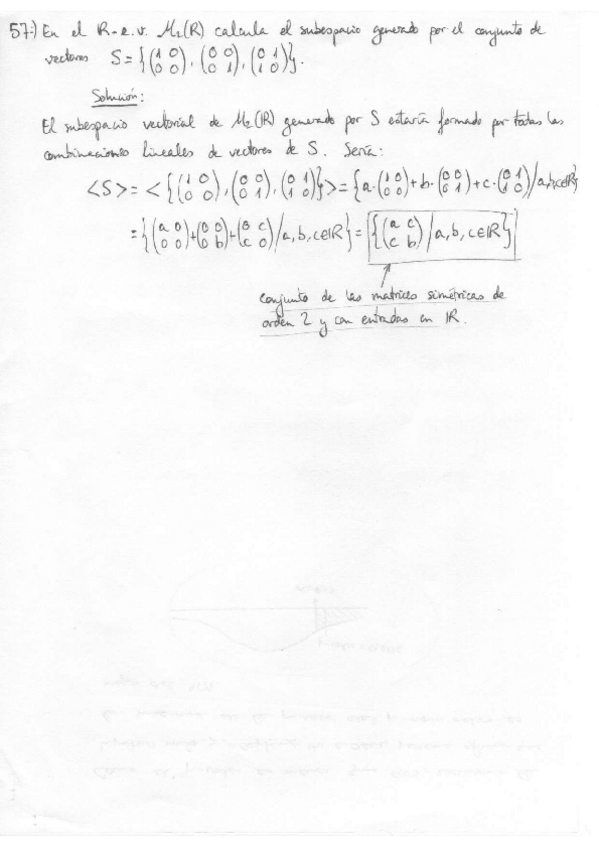 57:) En el R-e.v. M₂(R) calcula el subespacio generado por el conjunto de
vectores S = {(1 0; 0 0), (0 0; 0 1), (0 1; 1 0)}.
Solución:
El subespacio vectorial de M₂(R) generado por S estaría formado por todas las
combinaciones lineales de vectores de S. Sería:
<S> = <{(1 0; 0 0), (0 0; 0 1), (0 1; 1 0)}> = {a·(1 0; 0 0) + b·(0 0; 0 1) + c·(0 1; 1 0) / a,b,c∈R}
= {(a 0; 0 0) + (0 0; 0 b) + (0 c; c 0) / a, b, c∈R} = {(a c; c b) / a, b, c∈R}
conjunto de las matrices simétricas de
orden 2 y con entradas en R.